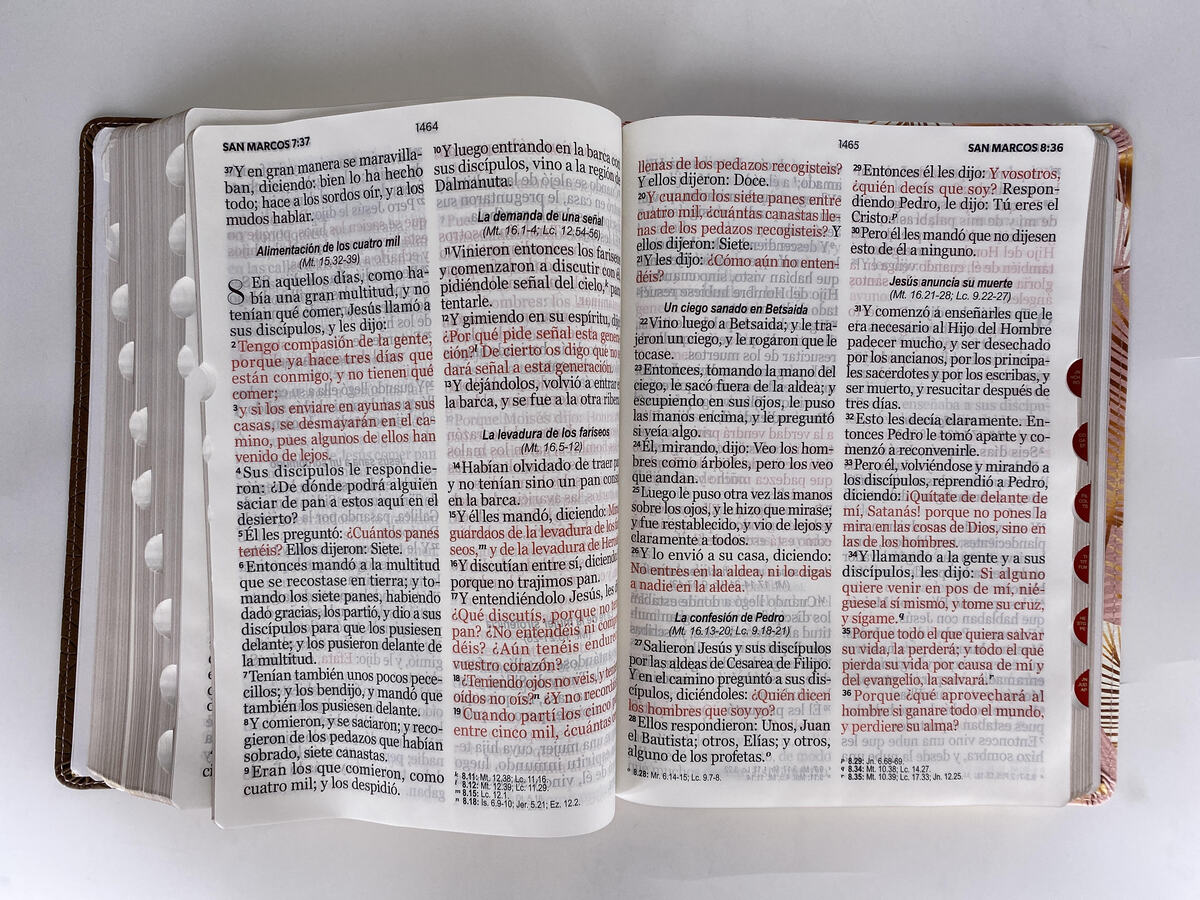 SAN MARCOS 7:37
1464
37 Y en gran manera se maravilla-
ban, diciendo: bien lo ha hecho
todo; hace a los sordos oír, y a los
mudos hablar.
Alimentación de los cuatro mil
(Mt. 15.32-39)
8 En aquellos días, como ha-
bía una gran multitud, y no
tenían qué comer, Jesús llamó a
sus discípulos, y les dijo:
2 Tengo compasión de la gente,
porque ya hace tres días que
están conmigo, y no tienen qué
comer;
3 y si los enviare en ayunas a sus
casas, se desmayarán en el ca-
mino, pues algunos de ellos han
venido de lejos.
4 Sus discípulos le respondie-
ron: ¿De dónde podrá alguien
saciar de pan a estos aquí en el
desierto?
5 Él les preguntó: ¿Cuántos panes
tenéis? Ellos dijeron: Siete.
6 Entonces mandó a la multitud
que se recostase en tierra; y to-
mando los siete panes, habiendo
dado gracias, los partió, y dio a sus
discípulos para que los pusiesen
delante; y los pusieron delante de
la multitud.
7 Tenían también unos pocos pece-
cillos; y los bendijo, y mandó que
también los pusiesen delante.
8 Y comieron, y se saciaron; y reco-
gieron de los pedazos que habían
sobrado, siete canastas.
9 Eran los que comieron, como
cuatro mil; y los despidió.
10 Y luego entrando en la barca con
sus discípulos, vino a la región de
Dalmanuta.
La demanda de una señal
(Mt. 16.1-4; Lc. 12.54-56)
11 Vinieron entonces los fariseos
y comenzaron a discutir con él,
pidiéndole señal del cielo,k para
tentarle.
12 Y gimiendo en su espíritu, dijo:
¿Por qué pide señal esta gene-
ción?l De cierto os digo que no se
dará señal a esta generación.
13 Y dejándolos, volvió a entrar en
la barca, y se fue a la otra ribera.
La levadura de los fariseos
(Mt. 16.5-12)
14 Habían olvidado de traer pan
y no tenían sino un pan consigo
en la barca.
15 Y él les mandó, diciendo: Mirad
guardaos de la levadura de los fari-
seos,m y de la levadura de Herodes
16 Y discutían entre sí, diciendo:
porque no trajimos pan.
17 Y entendiéndolo Jesús, les dijo
¿Qué discutís, porque no tenéis
pan? ¿No entendéis ni compren-
déis? ¿Aún tenéis endurecido
vuestro corazón?
18 ¿Teniendo ojos no veis, y teniendo
oídos no oís?n ¿Y no recordáis
19 Cuando partí los cinco panes
entre cinco mil, ¿cuántas cestas
k 8.11: Mt. 12.38; Lc. 11.16.
l 8.12: Mt. 12.39; Lc. 11.29.
m 8.15: Lc. 12.1.
n 8.18: Is. 6.9-10; Jer. 5.21; Ez. 12.2.
1465
SAN MARCOS 8:36
llenas de los pedazos recogisteis?
Y ellos dijeron: Doce.
20 Y cuando los siete panes entre
cuatro mil, ¿cuántas canastas lle-
nas de los pedazos recogisteis? Y
ellos dijeron: Siete.
21 Y les dijo: ¿Cómo aún no enten-
déis?
Un ciego sanado en Betsaida
22 Vino luego a Betsaida; y le tra-
jeron un ciego, y le rogaron que le
tocase.
23 Entonces, tomando la mano del
ciego, le sacó fuera de la aldea; y
escupiendo en sus ojos, le puso
las manos encima, y le preguntó
si veía algo.
24 Él, mirando, dijo: Veo los hom-
bres como árboles, pero los veo
que andan.
25 Luego le puso otra vez las manos
sobre los ojos, y le hizo que mirase;
y fue restablecido, y vio de lejos y
claramente a todos.
26 Y lo envió a su casa, diciendo:
No entres en la aldea, ni lo digas
a nadie en la aldea.
La confesión de Pedro
(Mt. 16.13-20; Lc. 9.18-21)
27 Salieron Jesús y sus discípulos
por las aldeas de Cesarea de Filipo.
Y en el camino preguntó a sus dis-
cípulos, diciéndoles: ¿Quién dicen
los hombres que soy yo?
28 Ellos respondieron: Unos, Juan
el Bautista; otros, Elías; y otros,
alguno de los profetas.o
o 8.28: Mr. 6.14-15; Lc. 9.7-8.
29 Entonces él les dijo: Y vosotros,
¿quién decís que soy? Respon-
diendo Pedro, le dijo: Tú eres el
Cristo.p
30 Pero él les mandó que no dijesen
esto de él a ninguno.
Jesús anuncia su muerte
(Mt. 16.21-28; Lc. 9.22-27)
31 Y comenzó a enseñarles que le
era necesario al Hijo del Hombre
padecer mucho, y ser desechado
por los ancianos, por los principa-
les sacerdotes y por los escribas, y
ser muerto, y resucitar después de
tres días.
32 Esto les decía claramente. En-
tonces Pedro le tomó aparte y co-
menzó a reconvenirle.
33 Pero él, volviéndose y mirando a
los discípulos, reprendió a Pedro,
diciendo: ¡Quítate de delante de
mí, Satanás! porque no pones la
mira en las cosas de Dios, sino en
las de los hombres.
34 Y llamando a la gente y a sus
discípulos, les dijo: Si alguno
quiere venir en pos de mí, nié-
guese a sí mismo, y tome su cruz,
y sígame.q
35 Porque todo el que quiera salvar
su vida, la perderá; y todo el que
pierda su vida por causa de mí y
del evangelio, la salvará.r
36 Porque ¿qué aprovechará al
hombre si ganare todo el mundo,
y perdiere su alma?
p 8.29: Jn. 6.68-69.
q 8.34: Mt. 10.38; Lc. 14.27.
r 8.35: Mt. 10.39; Lc. 17.33; Jn. 12.25.